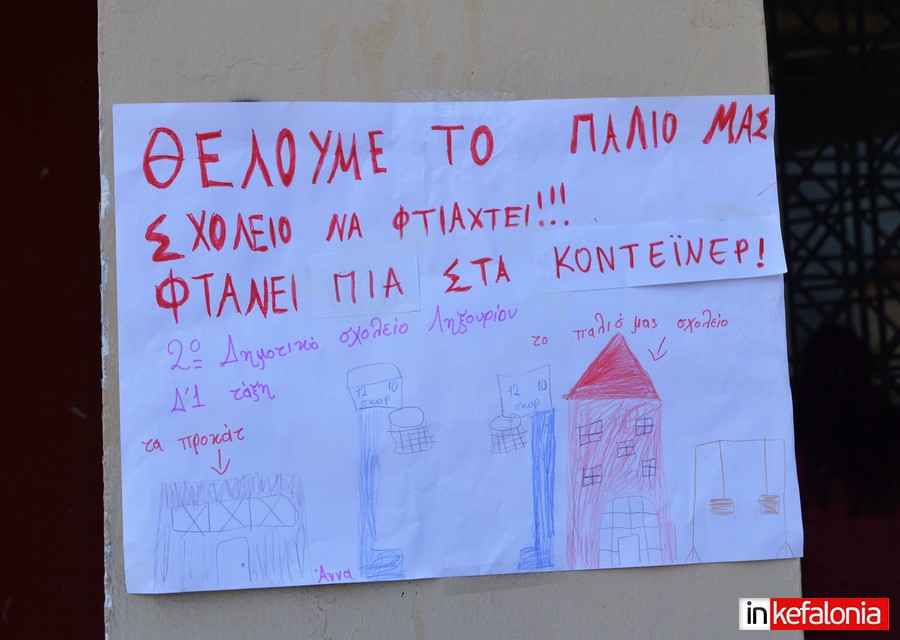 ΘΕΛΟΥΜΕ ΤΟ ΠΑΛΙΟ ΜΑΣ
ΣΧΟΛΕΙΟ ΝΑ ΦΤΙΑΧΤΕΙ!!!
ΦΤΑΝΕΙ ΠΙΑ ΣΤΑ ΚΟΝΤΕΪΝΕΡ!
2ο Δημοτικό σχολείο Ληξουρίου
Δ'1 τάξη
το παλιό μας σχολείο
τα προκάτ
12 10
σκορ
12 10
σκορ
Άννα
inkefalonia